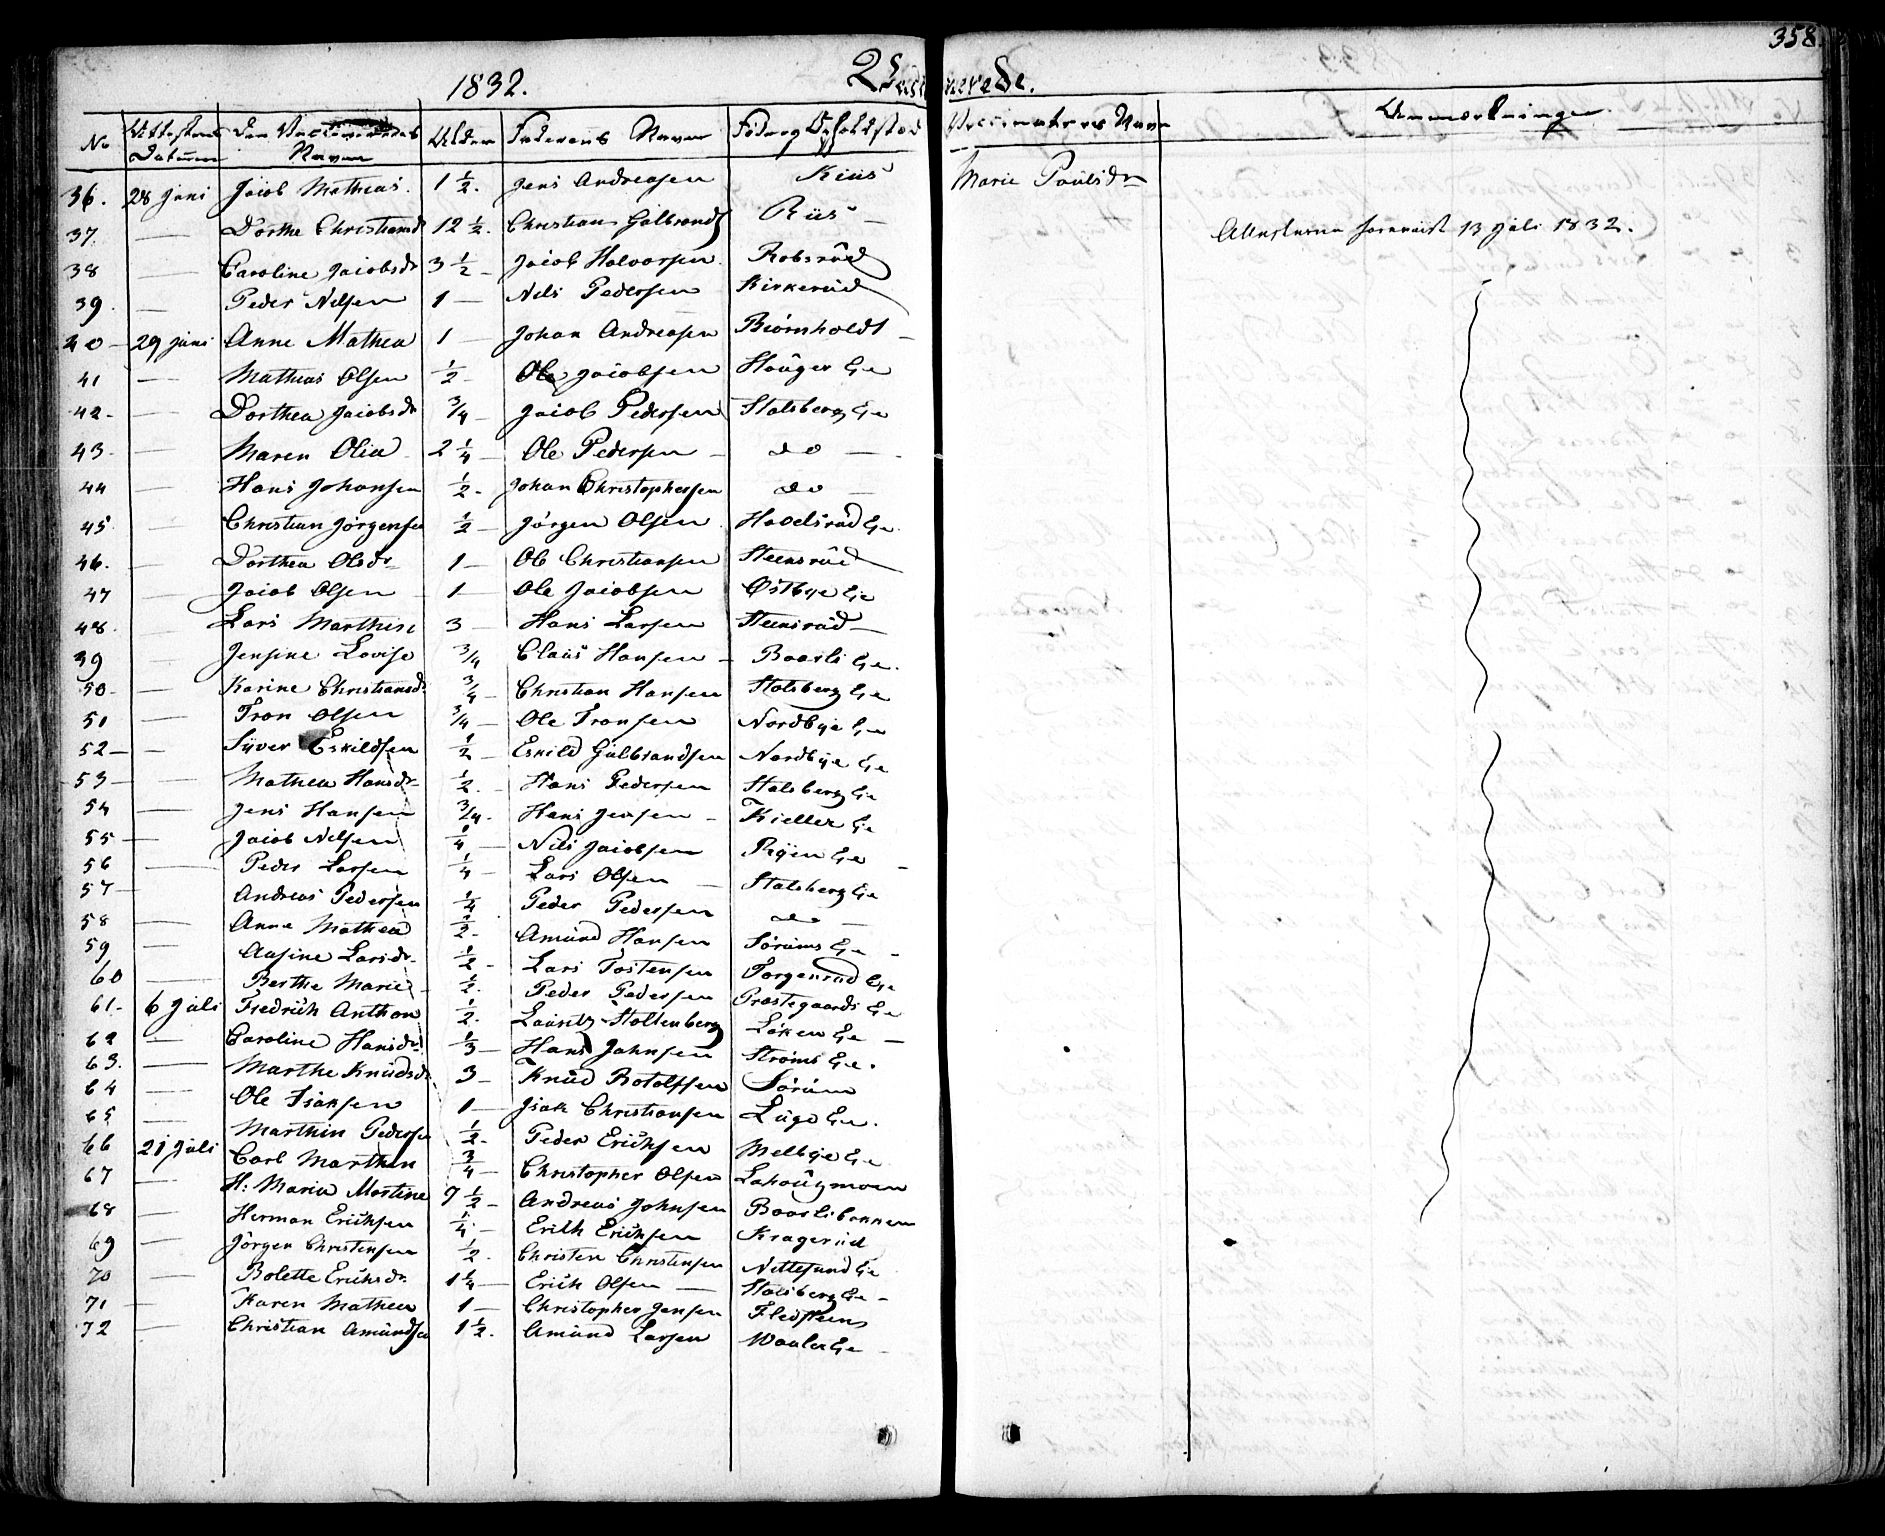 358.
1832. Vaccinerede.
No Attestens Datum Den Vaccineredes Navn Alder Faderens Navn Føde og Opholdsted Vaccinateurs Navn Anmærkninger
36. 28 Juni Jacob Mathias. 1 1/2. Jens Andreasen Riis Marie Poulsdr
37. — Dorthe Christiansdr 12 1/2. Christian Gulbrands Riis — Attesterne foreviist 13 Juli 1832.
38 — Caroline Jacobsdr 3 1/2 — Jacob Halvorsen Robsrud
39. — Peder Nilsen 1 — Nils Pedersen Kirkerud
40 — 29 Juni Anne Mathea 1 — Johan Andreasen Biørnholdt —
41 — Mathias Olsen 1/2 — Ole Jacobsen Houger Eie
42 — — Dorthea Jacobsdr 3/4 — Jacob Pedersen Stalsberg Eie
43. — Maren Olia 2 1/4 — Ole Pedersen — do —
44 — Hans Johansen 1/2. Johan Christophersen do —
45 — Christian Jørgensen 1/2 — Jørgen Olsen Hovelsrud Eie
46. — Dorthea Olsdr 1 — Ole Christiansen Steensrud
47 — Jacob Olsen 1 — Ole Jacobsen Østbye Eie
48. — Lars Marthin 3 — Hans Larsen Steensrud —
39 — Jensine Lovise 3/4 Claus Hansen — Baarli Eie.
50. — Karine Christiansdr 3/4 — Christian Hansen Stalsberg Eie
51 — Tron Olsen 3/4 — Ole Tronsen Nordbye Eie
52 — — Syver Eskildsen 1/2 — Eskild Gulbrandsen Nordbye Eie
53 — — Mathea Hansdr 1/2. Hans Pedersen Stalsberg Eie
54 — Jens Hansen 3/4. Hans Jensen — Kieller Eie
55 — Jacob Nilsen 1/4 — Nils Jacobsen Ryen Eie
56 — Peder Larsen 1/4 — Lars Olsen — Stalsberg Eie
57 — Andreas Pedersen 1/4 Peder Pedersen do —
58 — Anne Mathea 1/2. Amund Hansen Sørums Eie
59 — Aasine Larsdr 1/2 — Lars Tostensen Torgersrud Eie
60 — Berthe Marie 1/2. Peder Pedersen Præstegaards Eie
61. 6 Juli Fredrich Anthon 1/2. Lauritz Stoltenberg Løken Eie —
62 — Caroline Hansdr 1/3 — Hans Johnsen Strøms Eie.
63. — Marthe Knudsdr 3 — Knud Botolfsen Sørum
64 — Ole Isaksen 1 — Isak Christiansen Luge Eie.
65 — Marthin Pedersen 1/2 — Peder Erichsen Melbye Eie
66 21 Juli Carl Marthin 3/4 — Christopher Olsen Lahougmoen
67 — H: Maria Martine 7 1/2 — Andreas Johnsen Baarlibakken
68 — Herman Erichsen 1/4. — Erich Erichsen Kragerud
69 — Jørgen Christensen 1/2. Christen Christensen Nittesund Eie
70 — Bolette Erichsdr 1 1/4 — Erich Olsen — Stalsberg Eie —
71 — Karen Mathea 1 — Christopher Jensen
72 — Christian Amundsen 1 1/2. Amund Larsen Waaler Eie —